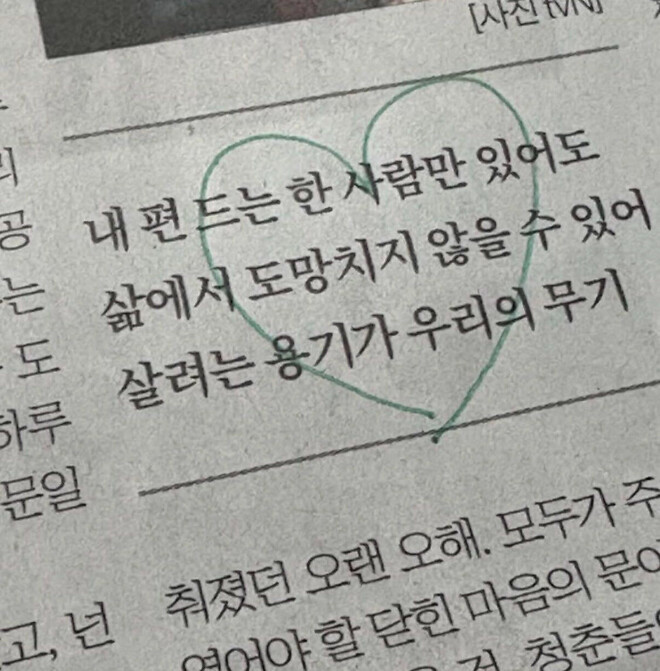 [사진 tvN]
내 편 드는 한 사람만 있어도
삶에서 도망치지 않을 수 있어
살려는 용기가 우리의 무기
공
는
도
하루
문일
고, 넌
취졌던 오랜 오해. 모두가 주
열어야 할 닫힌 마음의 문이
청춘들